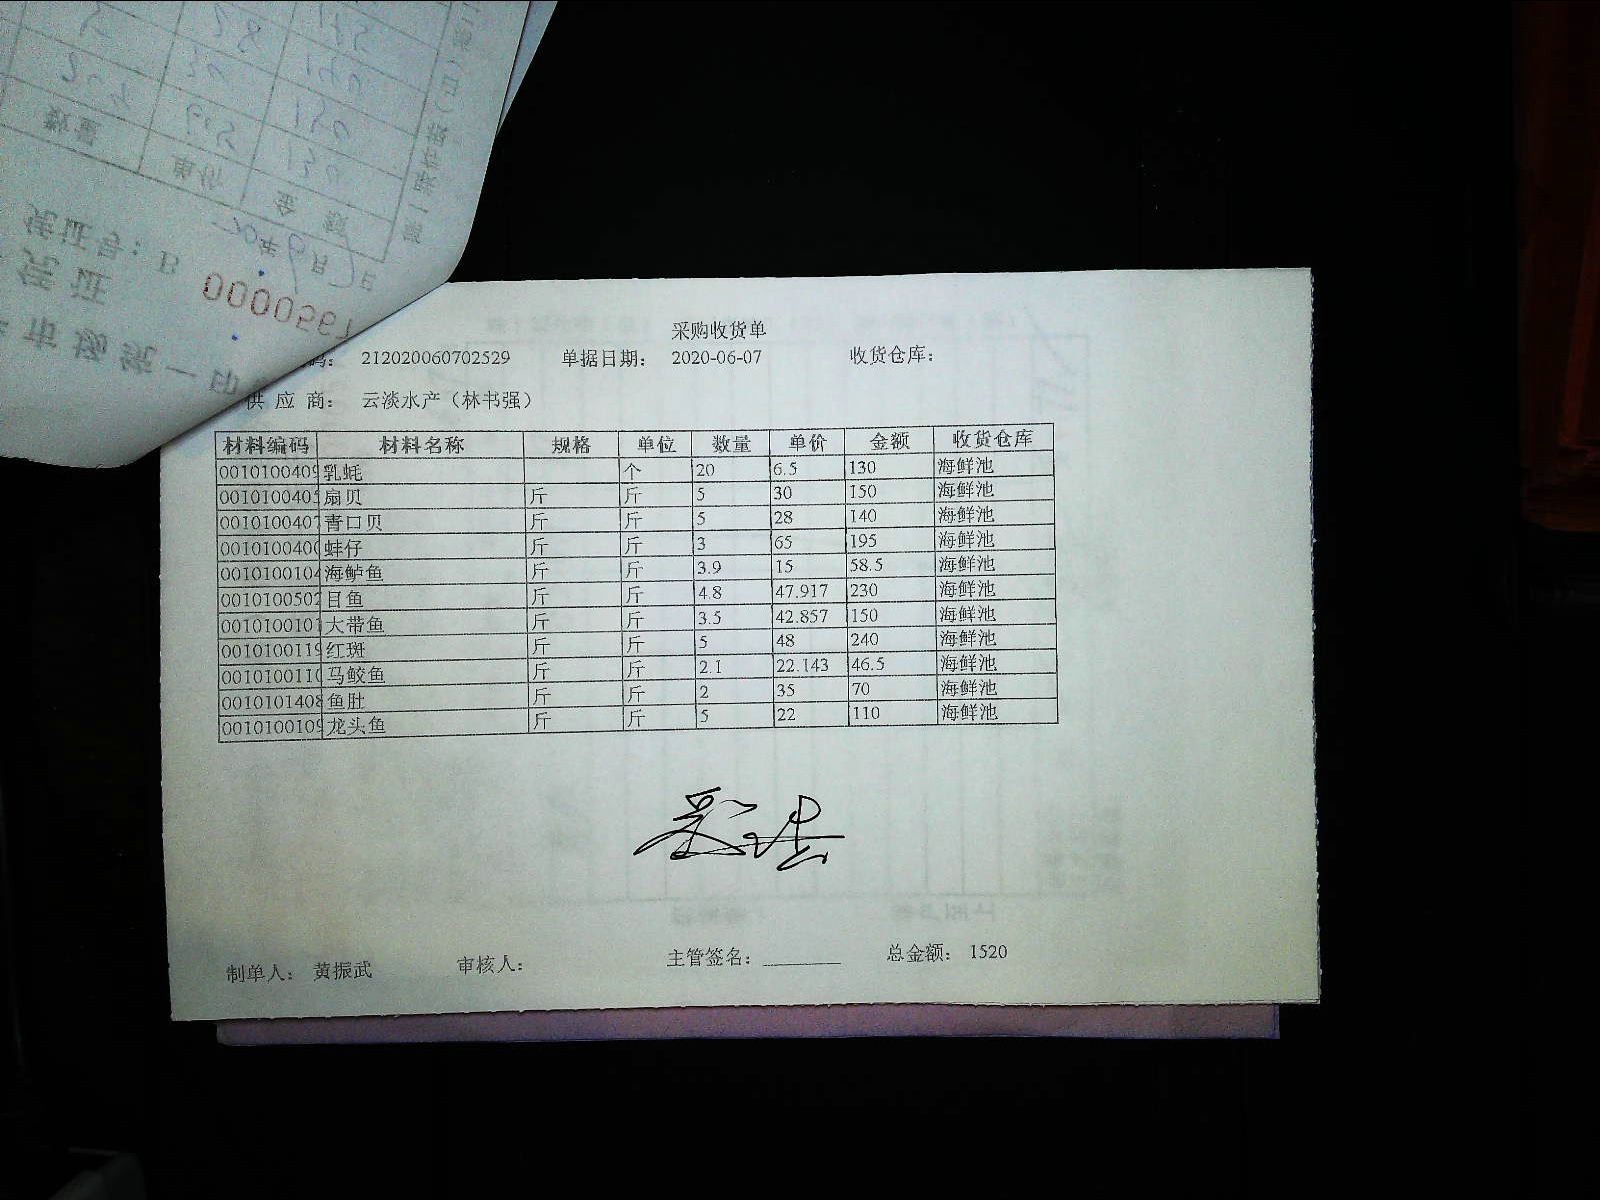 采购收货单
码： 212020060702529 单据日期： 2020-06-07 收货仓库：
供 应 商： 云淡水产（林书强）
材料编码 材料名称 规格 单位 数量 单价 金额 收货仓库
0010100409 乳蚝 个 20 6.5 130 海鲜池
0010100405 扇贝 斤 斤 5 30 150 海鲜池
0010100407 青口贝 斤 斤 5 28 140 海鲜池
0010100400 蛏仔 斤 斤 3 65 195 海鲜池
0010100104 海鲈鱼 斤 斤 3.9 15 58.5 海鲜池
0010100502 目鱼 斤 斤 4.8 47.917 230 海鲜池
0010100101 大带鱼 斤 斤 3.5 42.857 150 海鲜池
0010100119 红斑 斤 斤 5 48 240 海鲜池
0010100110 马鲛鱼 斤 斤 2.1 22.143 46.5 海鲜池
0010101408 鱼肚 斤 斤 2 35 70 海鲜池
0010100109 龙头鱼 斤 斤 5 22 110 海鲜池
制单人： 黄振武 审核人： 主管签名： 总金额： 1520
数量 单价 金 额
凭证号：B 0000567
凭证
市场统一印